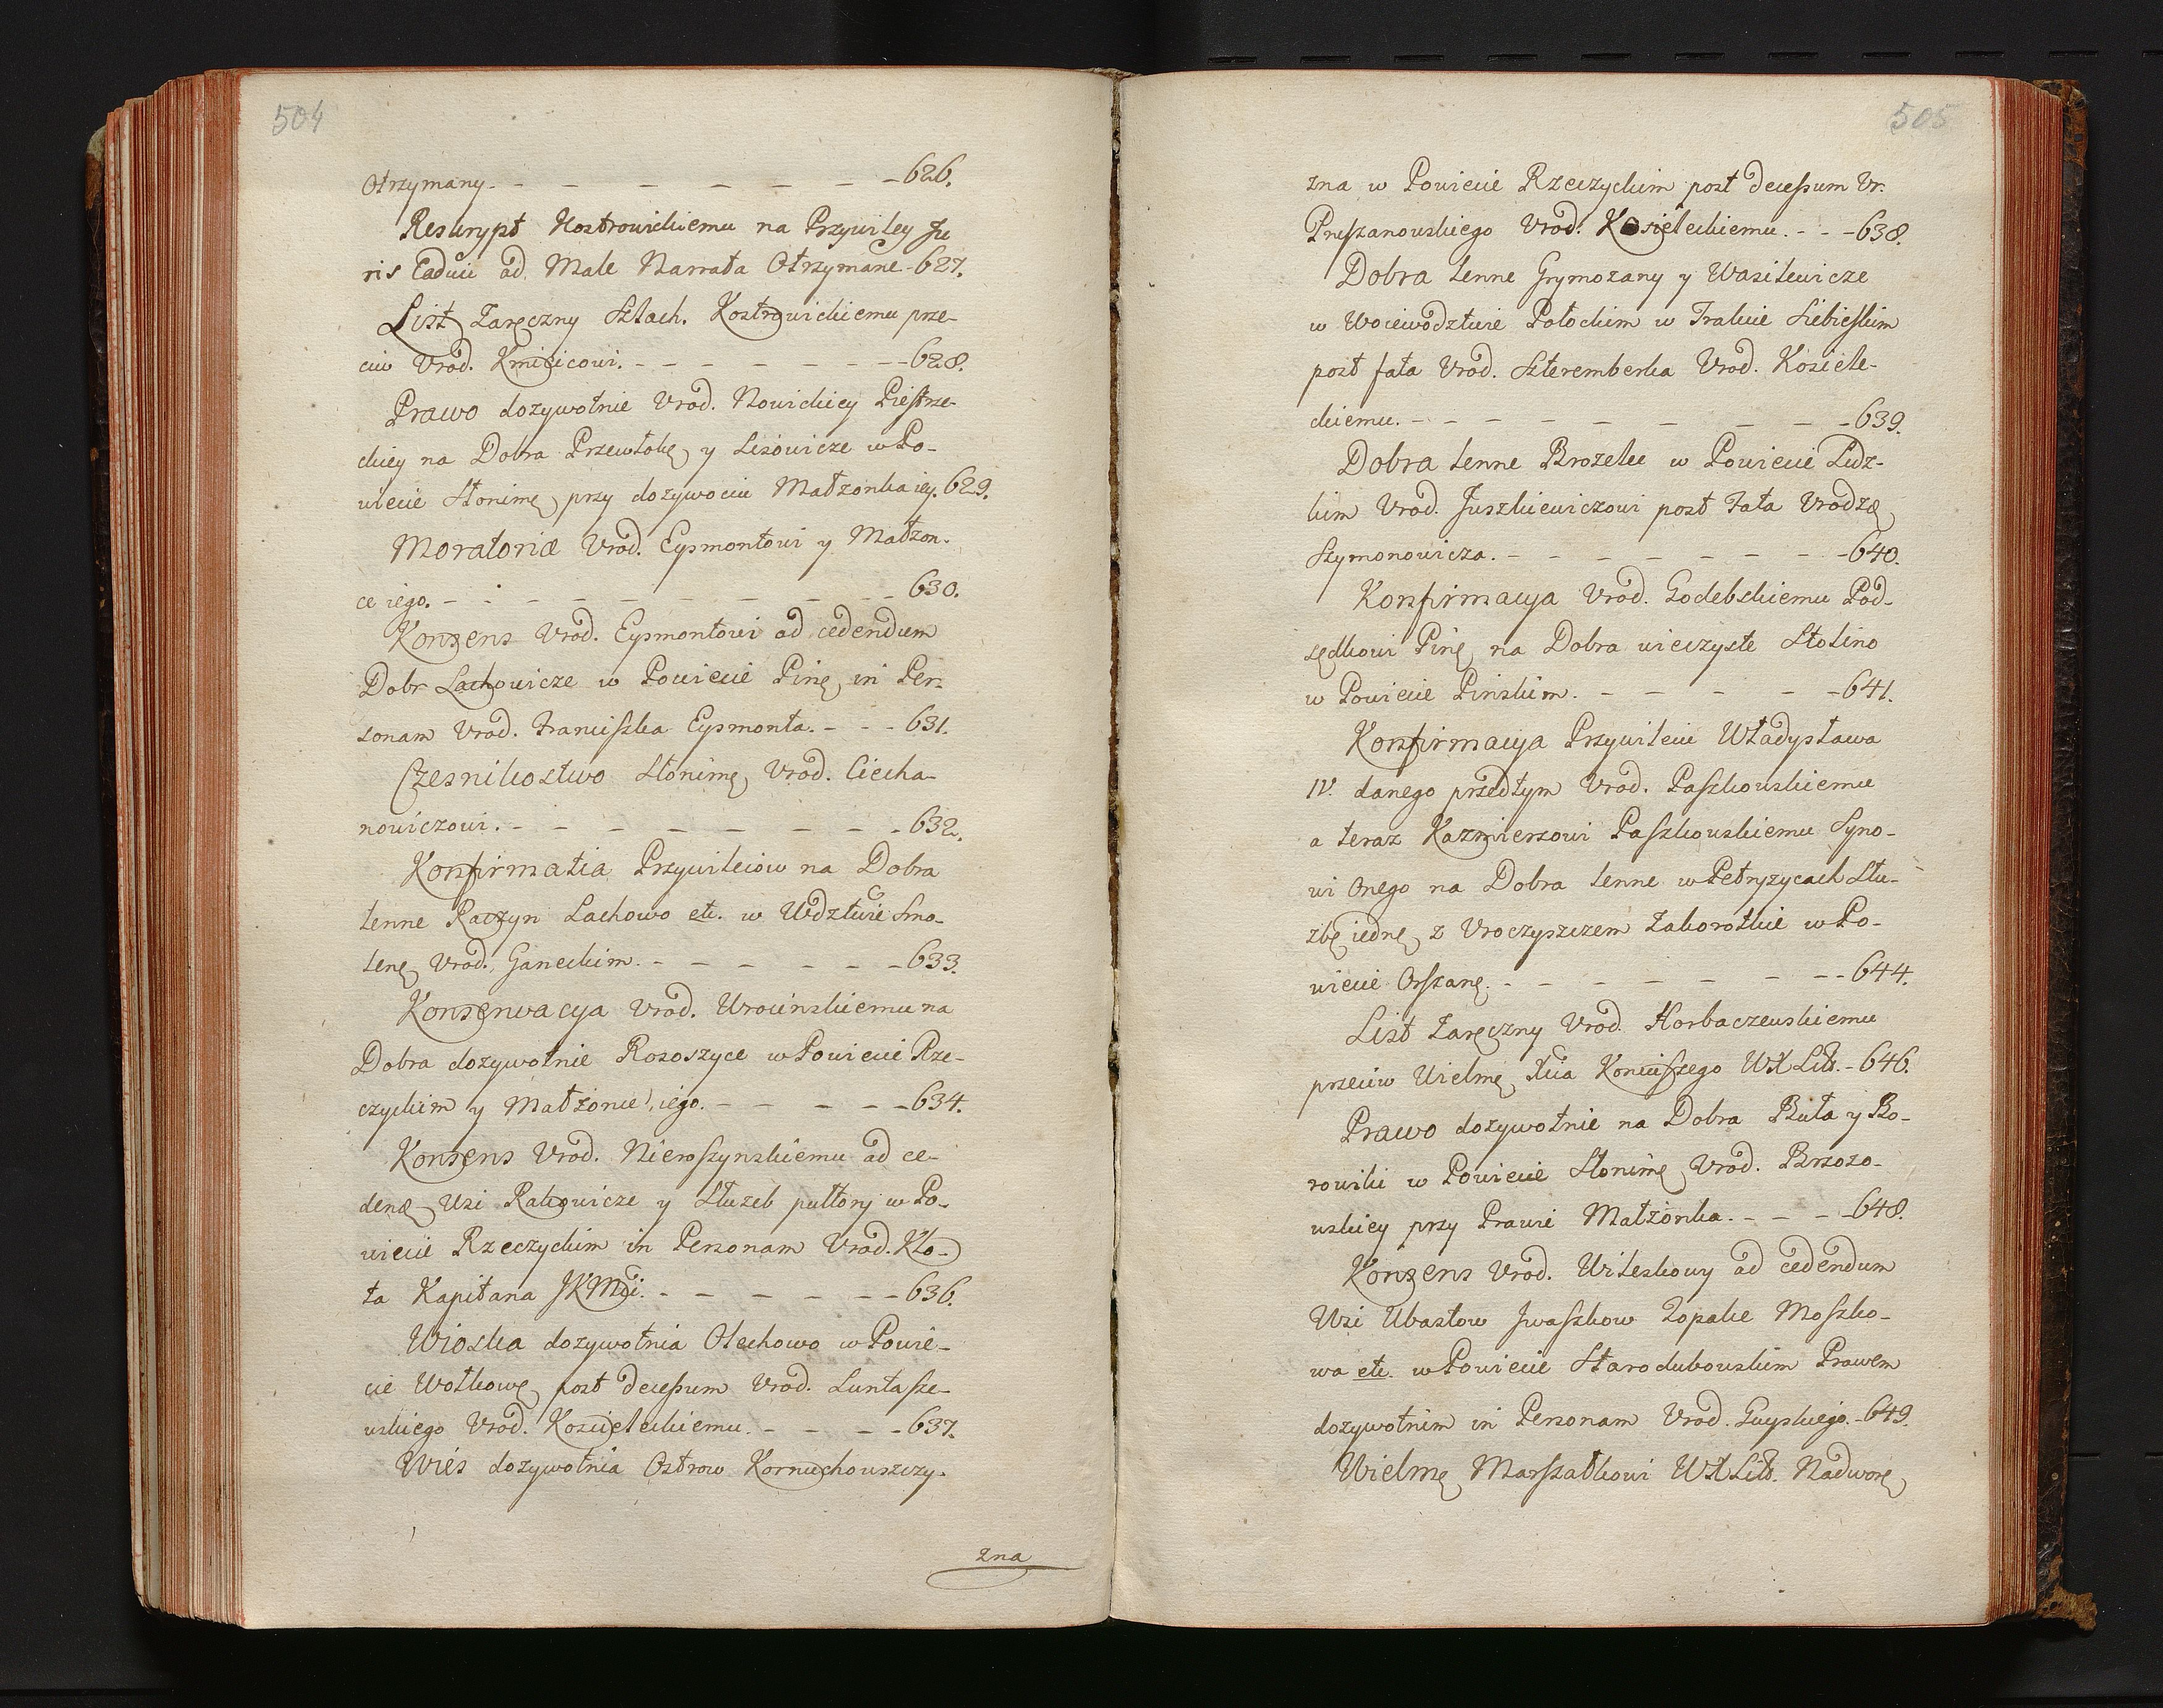 504
Otrzymany. - - - - - - - 626.
Reskrypt Kostrowickiemu na Przywiley Ju
ris Caduci ad Male Narrata Otrzymane - 627.
List Zaręczny Szlach. Kostrowickiemu prze-
ciw Vrod. Kmicicowi. - - - - - - - 628.
Prawo dozywotnie Vrod. Nowickiey
ckiey na Dobra y Lisowicze w Po-
wiecie Słonimę przy dozywociu Małżonka iey. 629.
Moratoriæ Vrod. Eysmontowi y Małzon-
ce iego. - - - - - - - - - 630.
Konsens Vrod. Eysmontowi ad cedendum
Dobr Lachowicze w Powiecie Pinę in Per-
sonam Vrod. Franciszka Eysmonta. - - - 631.
Czesnikostwo Słonimę Vrod. Ciecha-
nowiczowi. - - - - - - - 632.
Konfirmatia Przywileiow na Dobra
lenne Raczyn Lachowo etc. w Wdztwie Smo-
lenę Vrod. Ganeckim. - - - - - - 633.
Konserwacya Vrod. Wrocinskiemu na
Dobra dozywotnie Rososzyce w Powiecie Rze-
czyckim y Małżonce iego. - - - - - 634.
Konsens Vrod. Nieroszynskiemu ad ce-
dendę Wsi Rakowicze y Służeb pułtory w Po-
wiecie Rzeczyckim in Personam Vrod. Kło-
ta Kapitana JKMci. - - - - - - 636.
Wioska dozywotnia Olechowo w Powie-
cie Wołkowę post decessum Vrod. Luntasze-
wskiego Vrod. Kosieleckiemu. - - - - 637.
Wieś dozywotnia Ostrow Kornuchowszczy-
zna
505
zna w Powiecie Rzeczyckim post decessum Vr.
Pruszanowskiego Vrod. Kosieleckiemu. - - - 638.
Dobra lenne Grymozany y Wasilewicze
w Woiewodztwie Połockim w Trakcie Siebieskim
post fata Vrod. Szteremberka Vrod. Kosiele-
ckiemu. - - - - - - - - 639.
Dobra lenne Brozelee w Powiecie Lidz-
kim Vrod. Juszkiewiczowi post Fata Vrodzę
Szymonowicza. - - - - - - - - 640.
Konfirmacya Vrod. Godebskiemu Pod-
sędkowi Pinę na Dobra wieczyste Stolino
w Powiecie Pińskim. - - - - - 641.
Konfirmacya Przywileiu Władysława
IV. danego przedtym Vrod. Paszkowskiemu
a teraz Kazmierzowi Paszkowskiemu Syno-
wi Onego na Dobra lenne w Petryzycach Słu-
zbę iednę z Vroczyszczem Zaborotkie w Po-
wiecie Orszanę. - - - - - - - 644.
List Zaręczny Vrod. Horbaczewskiemu
przeciw Wielmę Xcia Koniuszego WXLitt. - 646.
Prawo dozywotnie na Dobra Buta y Bo-
rowiki w Powiecie Słonimę Vrod. Brzozo-
wskiey przy Prawie Małżonka. - - - - 648.
Konsens Vrod. Witeskowy ad cedendum
Wsi Ubastow Jwaszkow Zopalce Moszko-
wa etc. w Powiecie Starodubowskim Prawem
dozywotnim in Personam Vrod. Guyskiego. - 649.
Wielmę Marszałkowi WXLitt. Nadworę